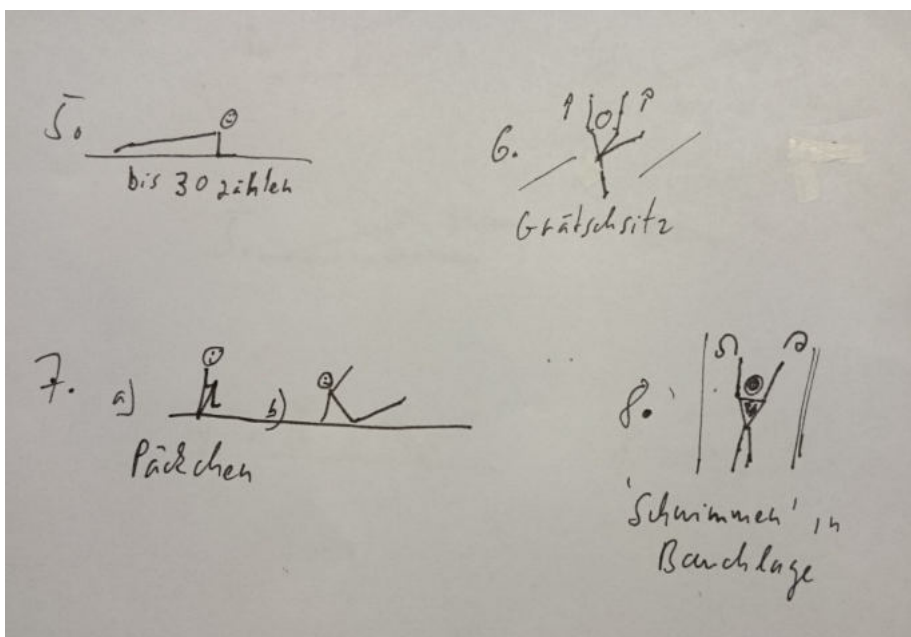 5.
bis 30 zählen
6.
Grätschsitz
7. a) b)
Päckchen
8.
'Schwimmen' in
Bauchlage